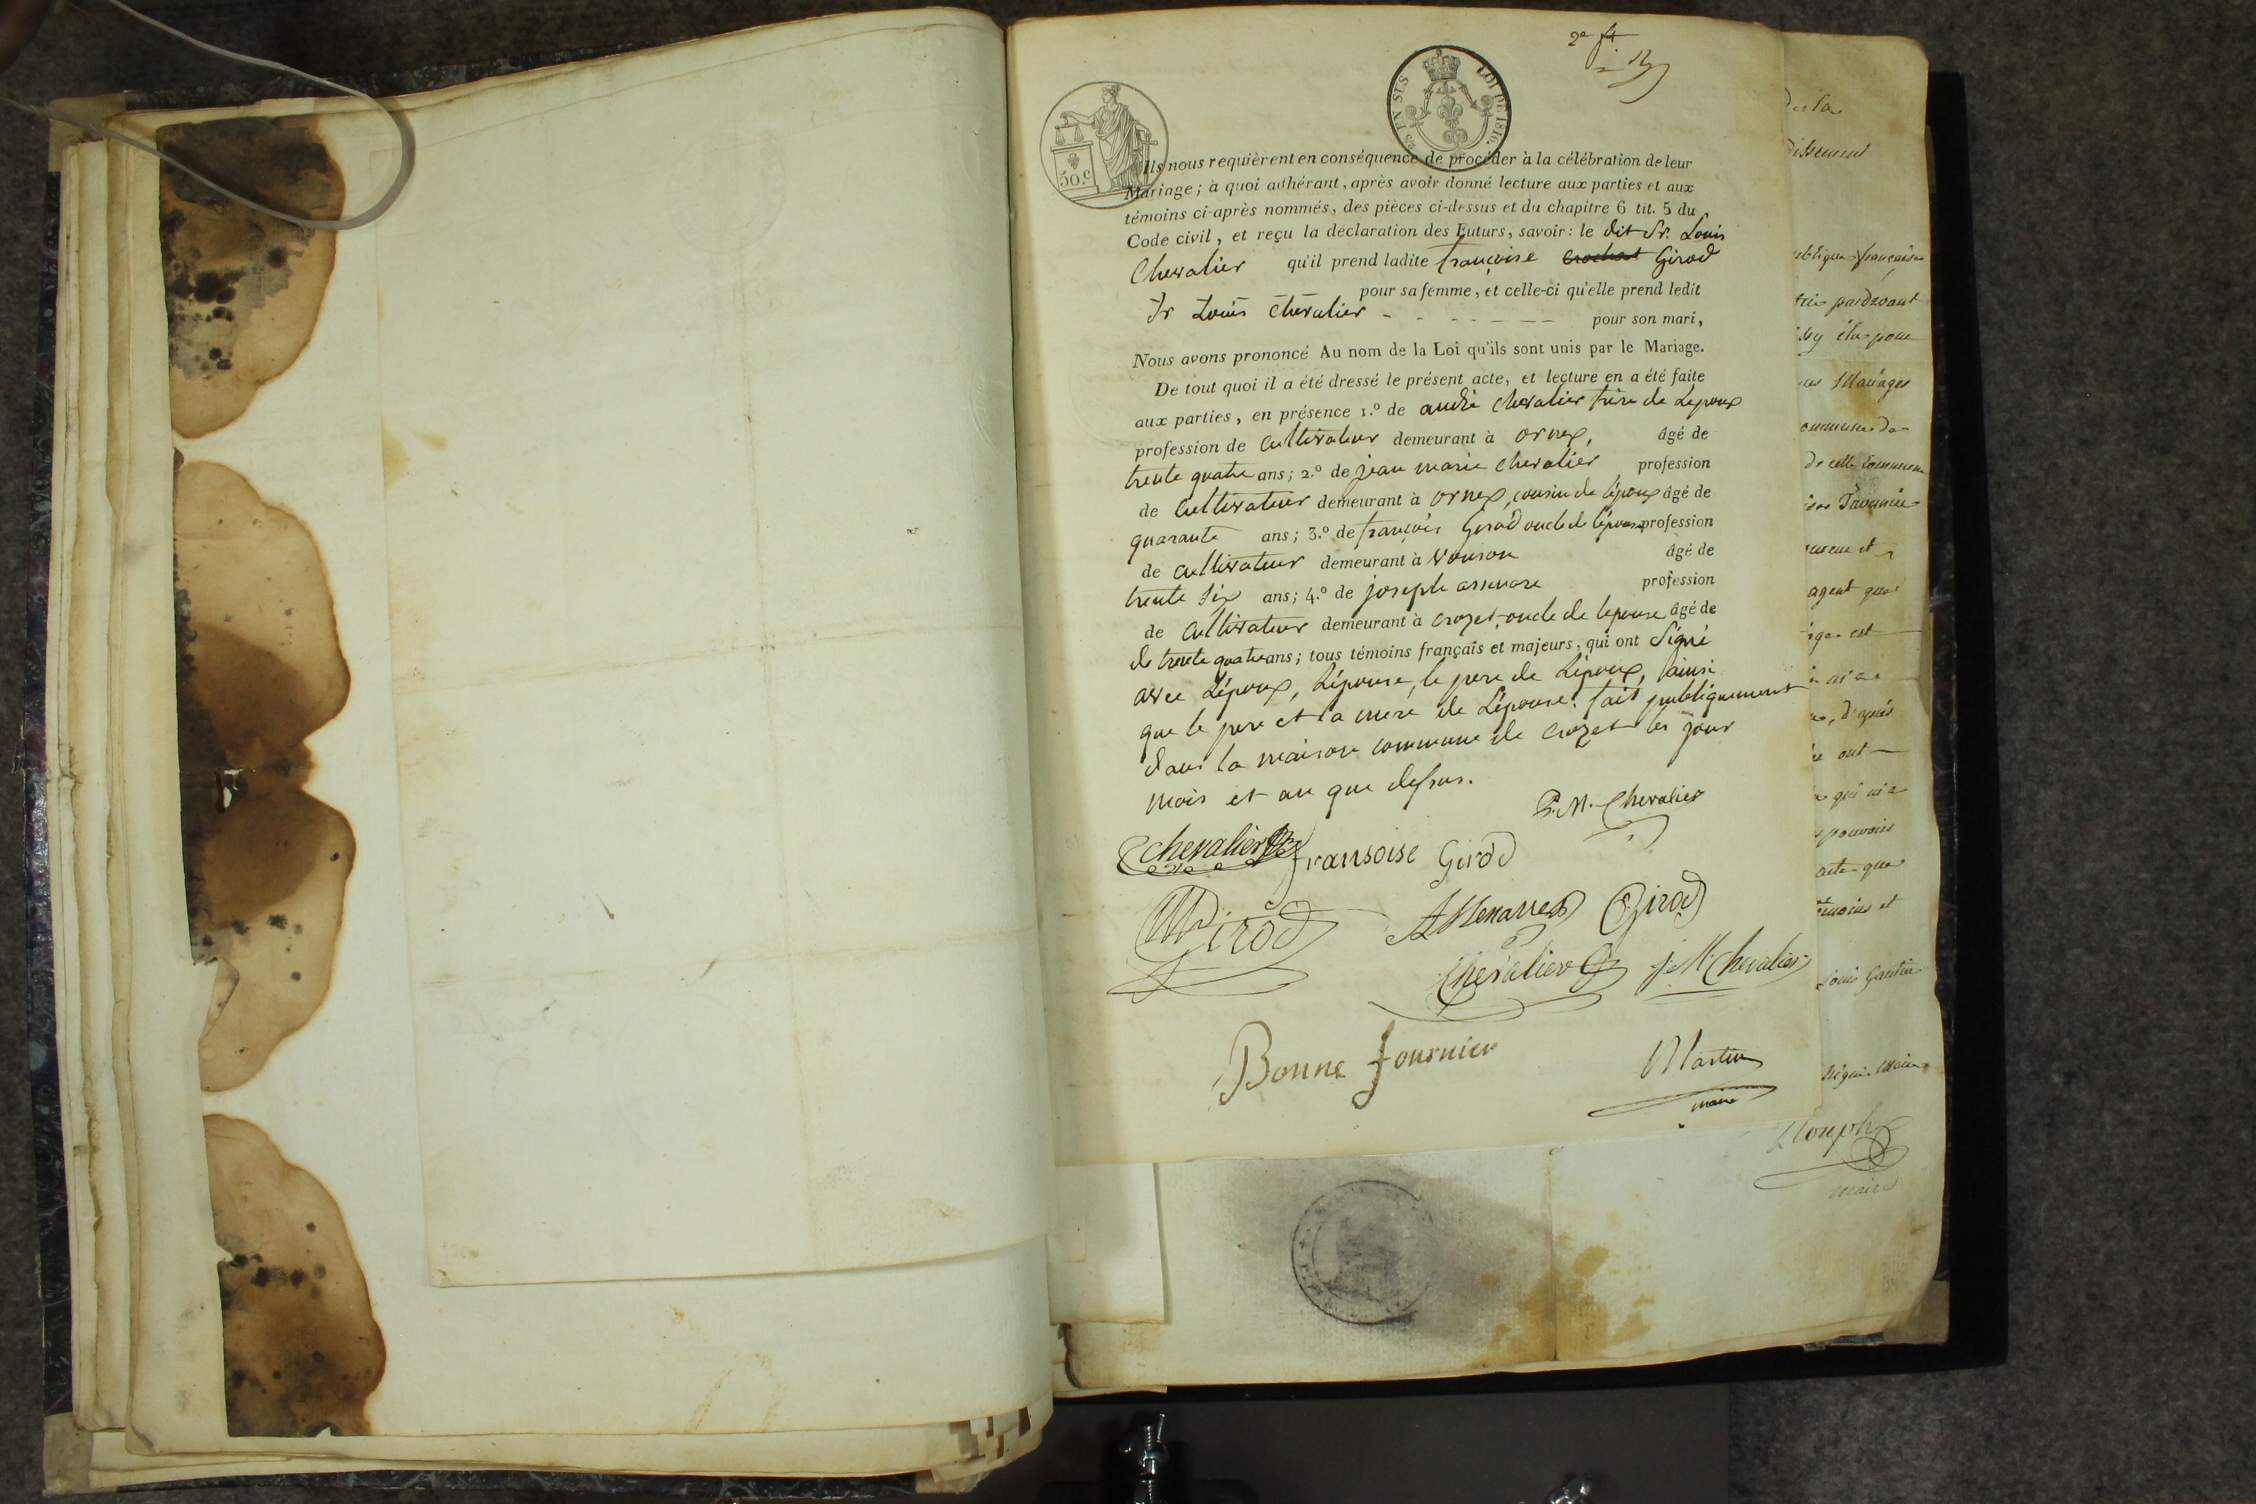 2e
50.c
EN SUS
LOI DE 1816.
Ils nous requièrent en conséquence de procéder à la célébration de leur
Mariage; à quoi adhérant, après avoir donné lecture aux parties et aux
témoins ci-après nommés, des pièces ci-dessus et du chapitre 6 tit. 5 du
Code civil, et reçu la déclaration des Futurs, savoir: le dit Sr. Louis
Chevalier qu'il prend ladite françoise crochat Girod
pour sa femme, et celle-ci qu'elle prend ledit
Sr Louis chevalier - - - - - - - pour son mari,
Nous avons prononcé Au nom de la Loi qu'ils sont unis par le Mariage.
De tout quoi il a été dressé le présent acte, et lecture en a été faite
aux parties, en présence 1.º de andré chevalier frère de Lepoux
profession de cultivateur demeurant à ornex, âgé de
trente quatre ans; 2.º de jean marie chevalier profession
de cultivateur demeurant à ornex, cousin de l'époux âgé de
quarante ans; 3.º de françois Girod oncle de l'épouse profession
de cultivateur demeurant à Vouson âgé de
trente six ans; 4.º de joseph assenare profession
de cultivateur demeurant à crozet, oncle de lepouse âgé de
de trente quatre ans; tous témoins français et majeurs, qui ont signé
avec Lépoux, Lépouse, le pere de Lépoux, ainsi
que le pere et la mere de Lépouse. fait publiquement
dans la maison commune de crozet les jour
mois et an que dessus.
P. M. Chevalier
chevalier
fransoise Girod
Girod
Assenare
Girod
Chevalier
j. M. Chevalier
Bonne fournier
Martin
maire
de la
dissement
ublique française
pardevant
élu pour
Mariages
ommune de
de cette commune
agent que
est
d'après
ont
qui m'a
pouvoirs
acte que
témoins et
Louis Gautier
maire